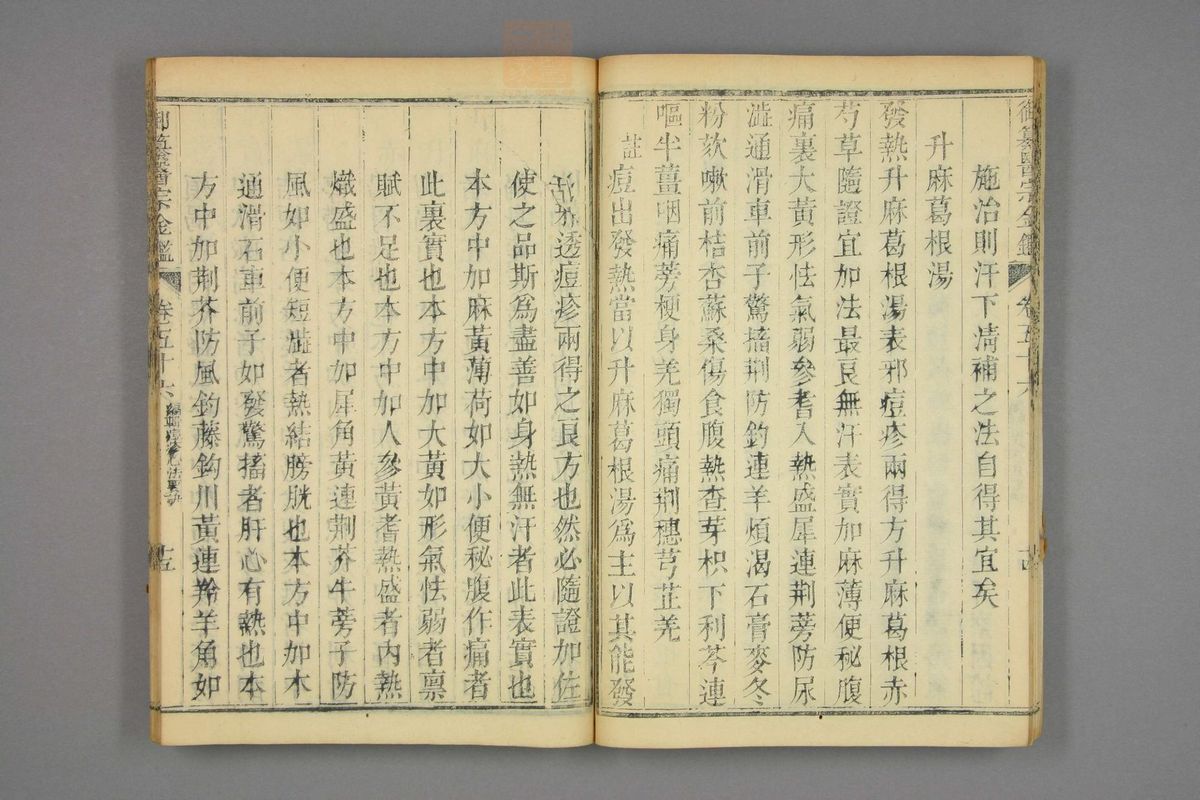 御纂醫宗金鑑 卷五十六
施治則汗下淸補之法自得其宜矣
升麻葛根湯
發熱升麻葛根湯表邪痘疹兩得方升麻葛根赤
芍草隨證宜加法最良無汗表實加麻薄便秘腹
痛裏大黃形怯氣弱參耆入熱盛犀連荆蒡防尿
澁通滑車前子驚搐荆防鈎連羊煩渴石膏麥冬
粉欬嗽前桔杏蘇桑傷食腹熱查芽枳下利芩連
嘔半薑咽痛蒡梗身羌獨頭痛荆穗芎芷羌
註痘出發熱當以升麻葛根湯爲主以其能發
透痘疹兩得之良方也然必隨證加佐
使之品斯爲盡善如身熱無汗者此表實也
本方中加麻黃薄荷如大小便秘腹作痛者
此裏實也本方中加大黃如形氣怯弱者禀
賦不足也本方中加人參黃耆熱盛者內熱
熾盛也本方中加犀角黃連荆芥牛蒡子防
風如小便短澁者熱結膀胱也本方中加木
通滑石車前子如發驚搐者肝心有熱也本
方中加荆芥防風鈎藤鈎川黃連羚羊角如
御纂醫宗金鑑 卷五十六 編輯痘疹心法要訣